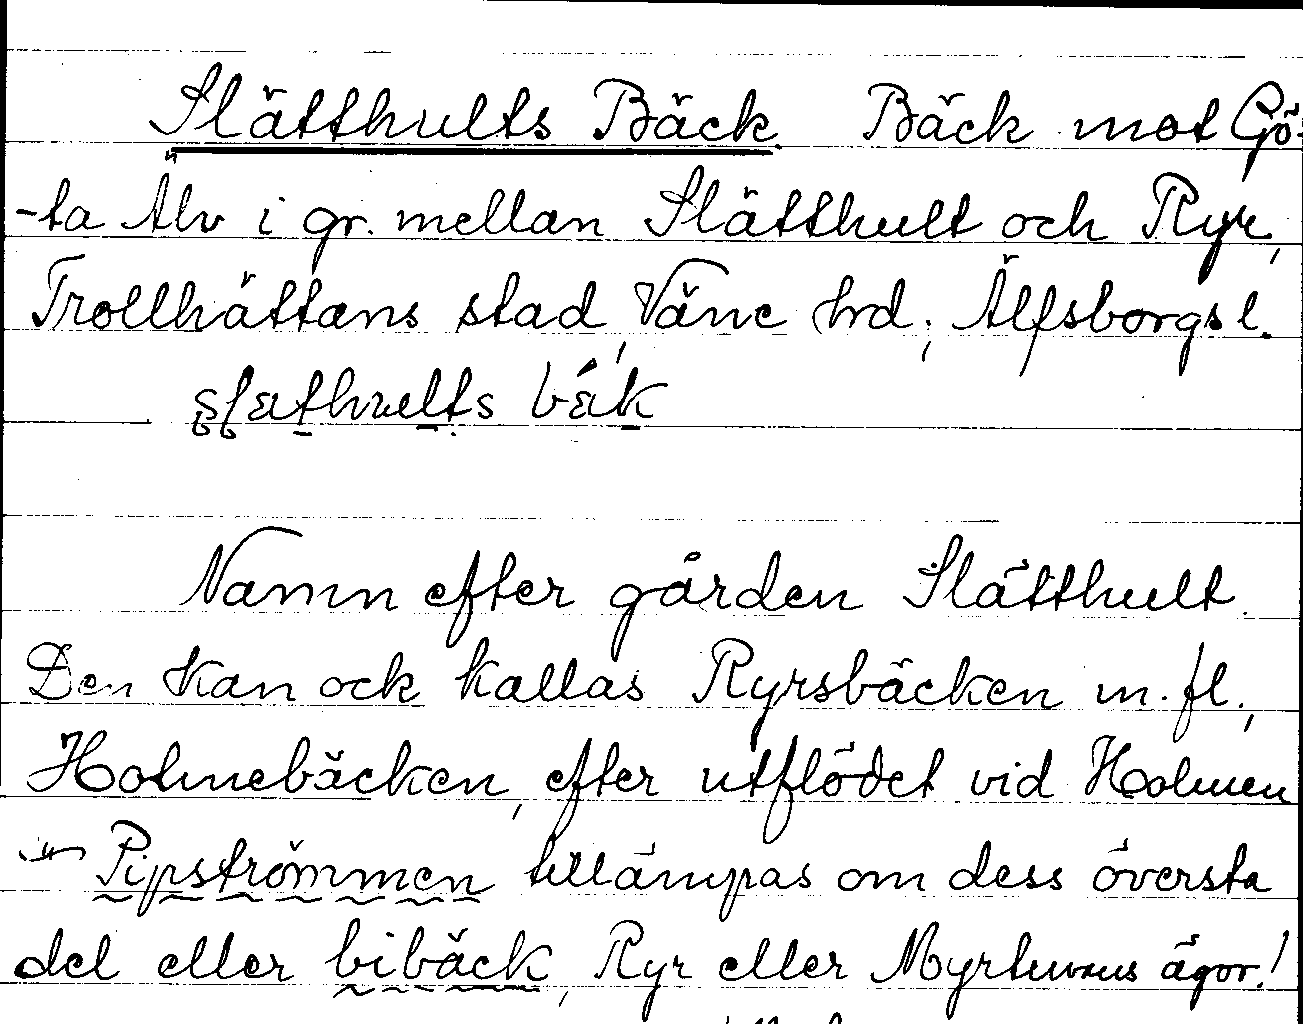 Slätthults Bäck. Bäck mot Gö-
-ta Älv i gr. mellan Slätthult och Ryr,
Trollhättans stad, Väne hrd; Älfsborgs l.
slæthults bæk
Namn efter gården Slätthult.
Den kan ock kallas Ryrsbäcken m.fl.,
Holmebäcken, efter utflödet vid Holmen
Pipströmmen tillämpas om dess översta
del eller bibäck, Ryr eller Myrhuvus ägor!